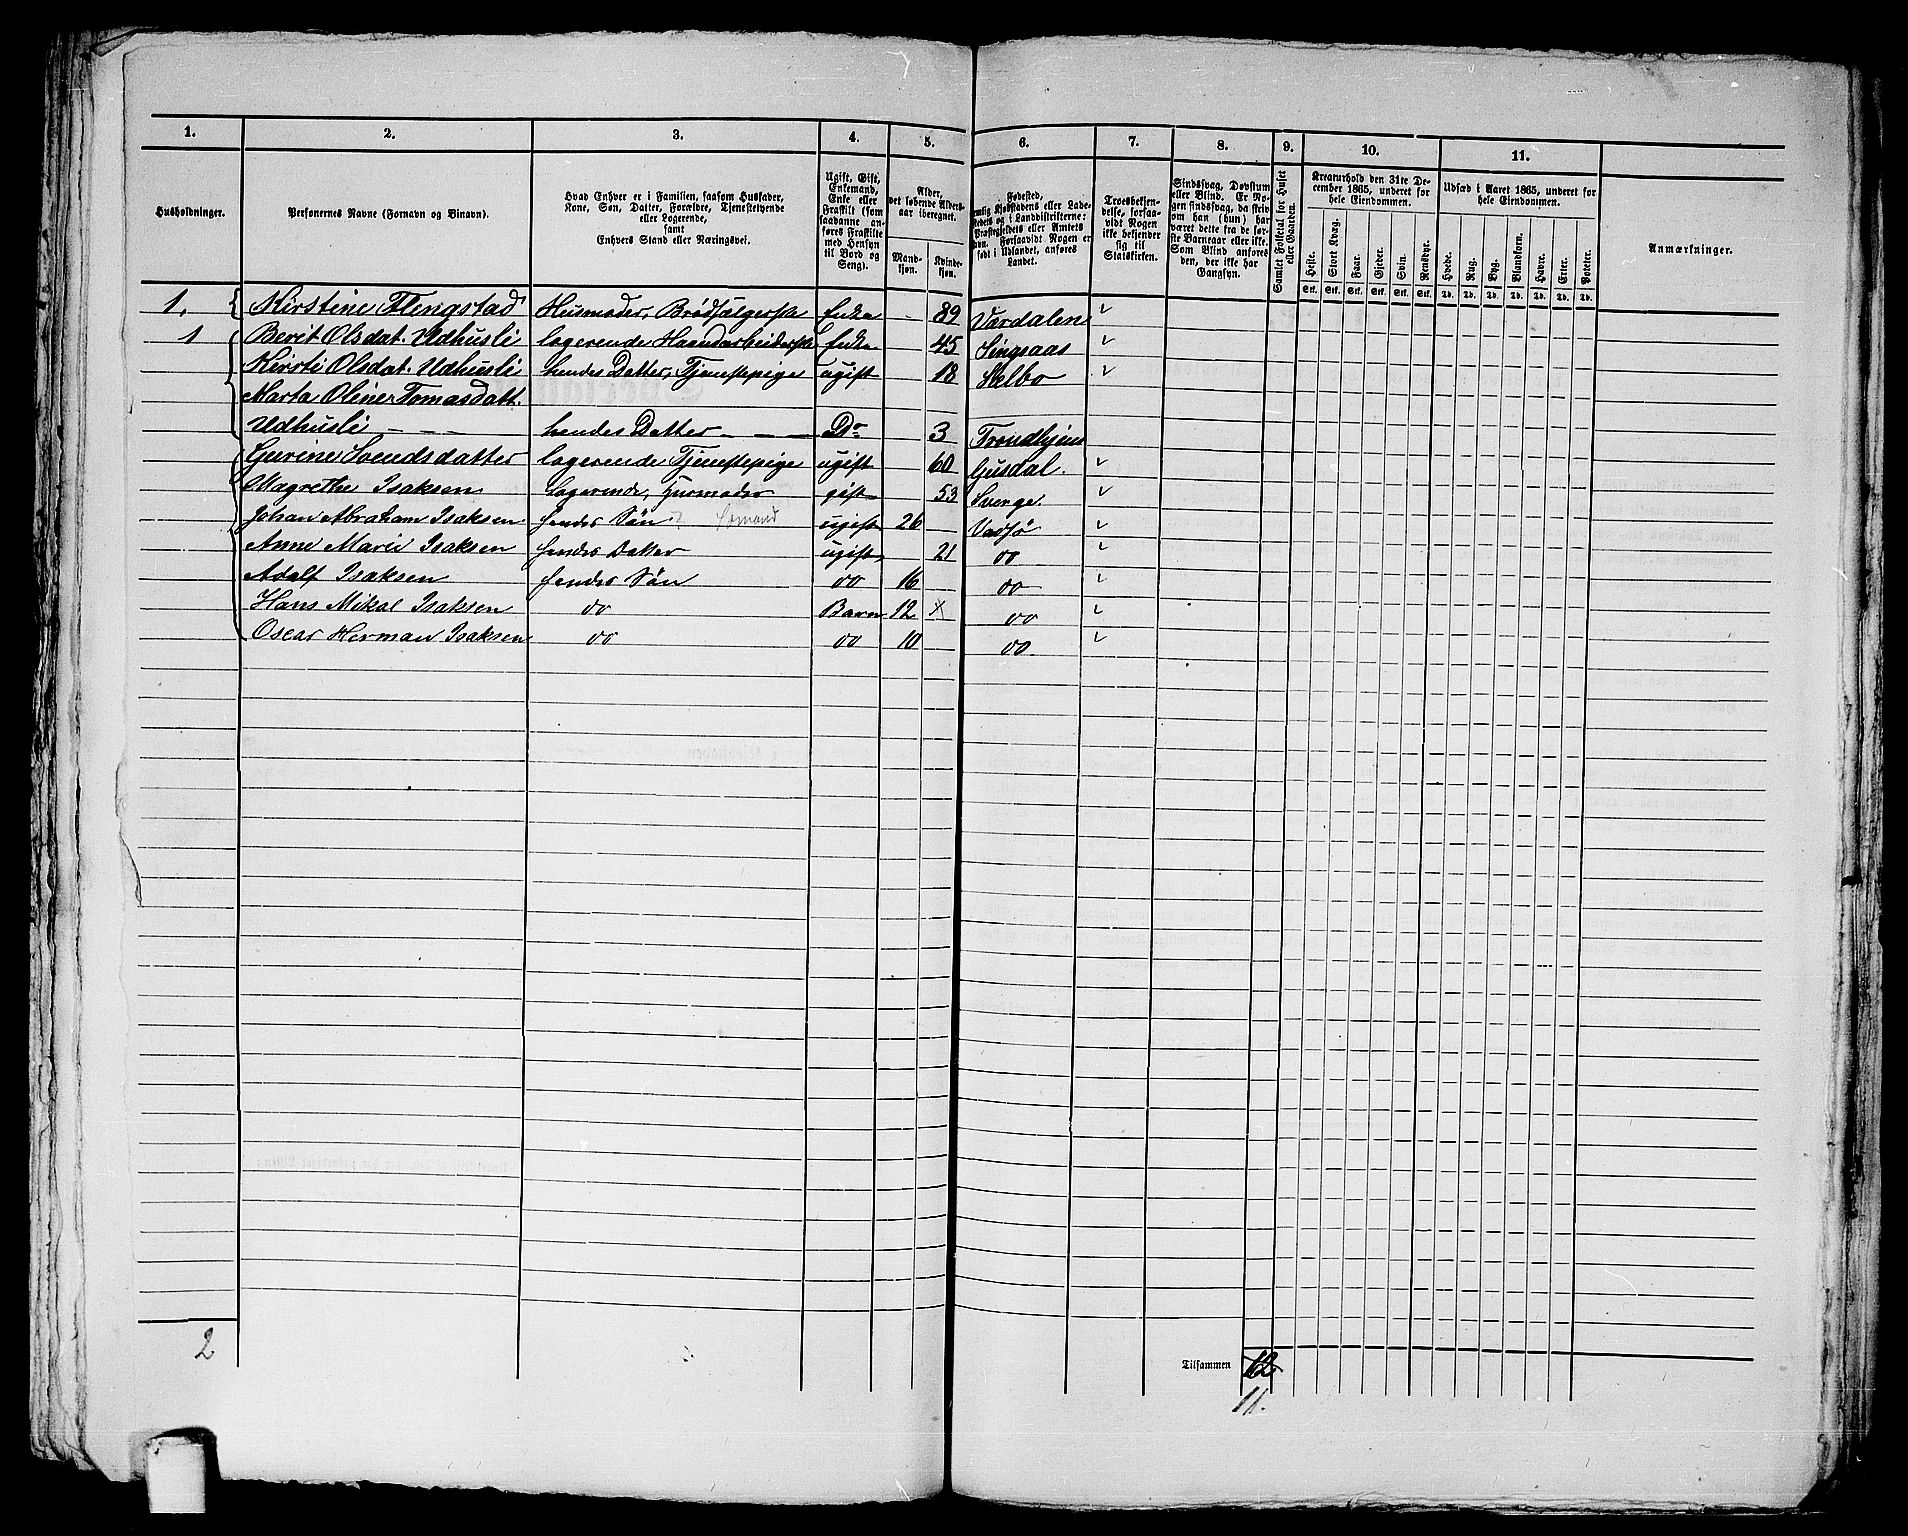 1. 2. 3. 4. 5. 6. 7. 8. 9. 10. 11.
Husholdninger.
Personernes Navne (Fornavn og Binavn).
Hvad Enhver er i Familien, saasom Husfader,
Kone, Søn, Datter, Forældre, Tjenestetyende
eller Logerende,
samt
Enhvers Stand eller Næringsvei.
Ugift, Gift,
Enkemand,
Enke eller
Fraskilt (som
saadanne an-
føres Fraskilte
med Hensyn
til Bord og
Seng).
Alder,
det løbende Alders-
aar iberegnet.
Mand-
kjøn.
Kvinde-
kjøn.
Fødested,
nemlig Kjøbstadens eller Lade-
stedets og i Landdistrikterne:
Præstegjeldets eller Amtets
Navn. Forsaavidt Nogen er
født i Udlandet, anføres
Landet.
Troesbekjen-
delse, forsaa-
vidt Nogen
ikke bekjender
sig til
Statskirken.
Sindssvag, Døvstum
eller Blind. Er No-
gen sindssvag, da skriv
om han (hun) har
været dette fra de før-
ste Barneaar eller ikke.
Som Blind anføres
den, der ikke har
Gangsyn.
Samlet Folketal for Huset
eller Gaarden.
Kreaturhold den 31te De-
cember 1865, underet for
hele Eiendommen.
Heste. Stort Kvæg. Faar. Gjeder. Svin. Rensdyr.
Stk. Stk. Stk. Stk. Stk. Stk.
Udsæd i Aaret 1865, underet for
hele Eiendommen.
Hvede. Rug. Byg. Blandkorn. Havre. Erter. Poteter.
Td. Td. Td. Td. Td. Td. Td.
Anmærkninger.
1. Kirstine Flengstad Husmoder, Brødsælgerske Enke - 89 Værdalen ✓
1 Berit Olsdat. Udhusli logerende Haandarbeiderske Enke 45 Singsaas ✓
Kirsti Olsdat. Udhusli hendes Datter, Tjenestepige ugift 18 Selbo ✓
Marta Oliner Tomasdatt.
Udhusli - - - hendes Datter - - - Do 3 Trondhjem
Gurine Svendsdatter logerende Tjenestepige ugift 60 Gusdal. ✓
Magrethe Isaksen Logerende, Husmoder gift 53 Sverge. ✓
Johan Abraham Isaksen hendes Søn Sømand ugift 26 Vadsø ✓
Anne Marie Isaksen hendes Datter ugift 21 do ✓
Adolf Isaksen hendes Søn do 16 do ✓
Hans Mikal Isaksen do Barn 12 x do ✓
Oscar Herman Isaksen do do 10 do ✓
2
Tilsammen 12
11.